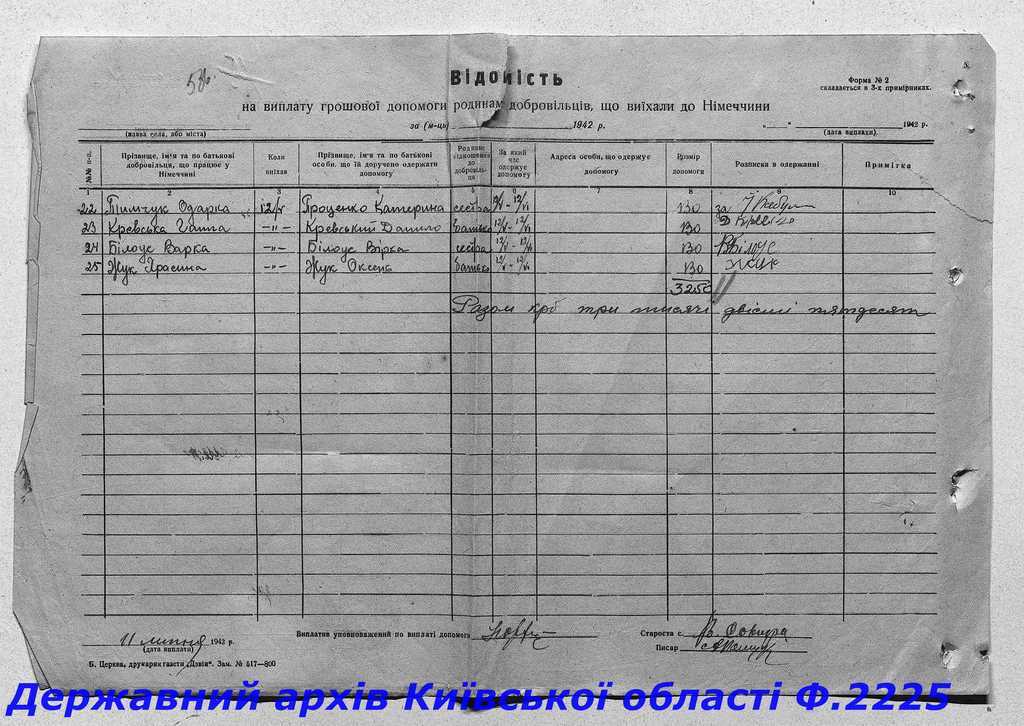 536.
Відомість
Форма № 2
складається в 3-х примірниках.
на виплату грошової допомоги родинам добровільців, що виїхали до Німеччини
(назва села, або міста)
за (м-ць) 1942 р.
" " 1942 р.
(дата виплати).
№№ п-п. Прізвище, ім'я та по батькові добровільця, що працює у Німеччині Коли виїхав Прізвище, ім'я та по батькові особи, що їй доручено одержати допомогу Родинне відношення до добровільця За який час одержує допомогу Адреса особи, що одержує допомогу Розмір допомоги Розписки в одержанні Примітка
1 2 3 4 5 6 7 8 9 10
22 Тимчук Одарка 12/V Проценко Катерина сестра 12/V - 12/VI 130 за
23 Кревська Ганна -"- Кревський Данило батько 12/V - 12/VI 130
24 Білоус Варка -"- Білоус Вірка сестра 12/V - 12/VI 130 ВБілоус
25 Жук Ярасина -"- Жук Оксена батько 12/V - 12/VI 130 Жук
3250
Разом крб три тисячі двісті пятдесят
11 липня 1942 р.
(дата виплати)
Виплатив уповноважений по виплаті допомоги
Староста с.
Писар
Б. Церква, друкарня газети „Дзвін". Зам. № 617—800
Державний архів Київської області Ф.2225